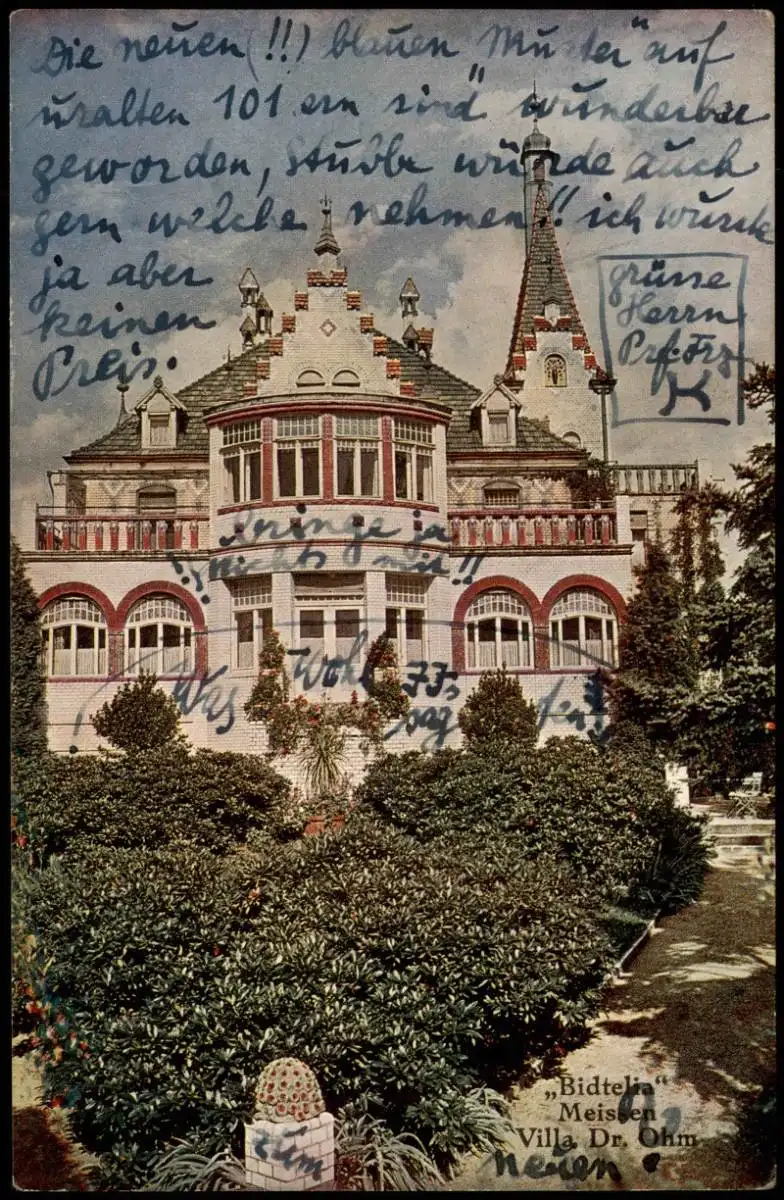 Die neuen (!!) blauen „Muster" auf
uralten 101 ern sind wunderbar
geworden, Stübbe würde auch
gern welche nehmen!! ich wusste
ja aber
keinen
Preis.
grüsse
Herrn
Prf. Frz
K
Bringe ja
nichts mit!!
Was wohl
sag
„Bidtelia"
Meissen
Villa Dr. Ohm
zum
neuen!